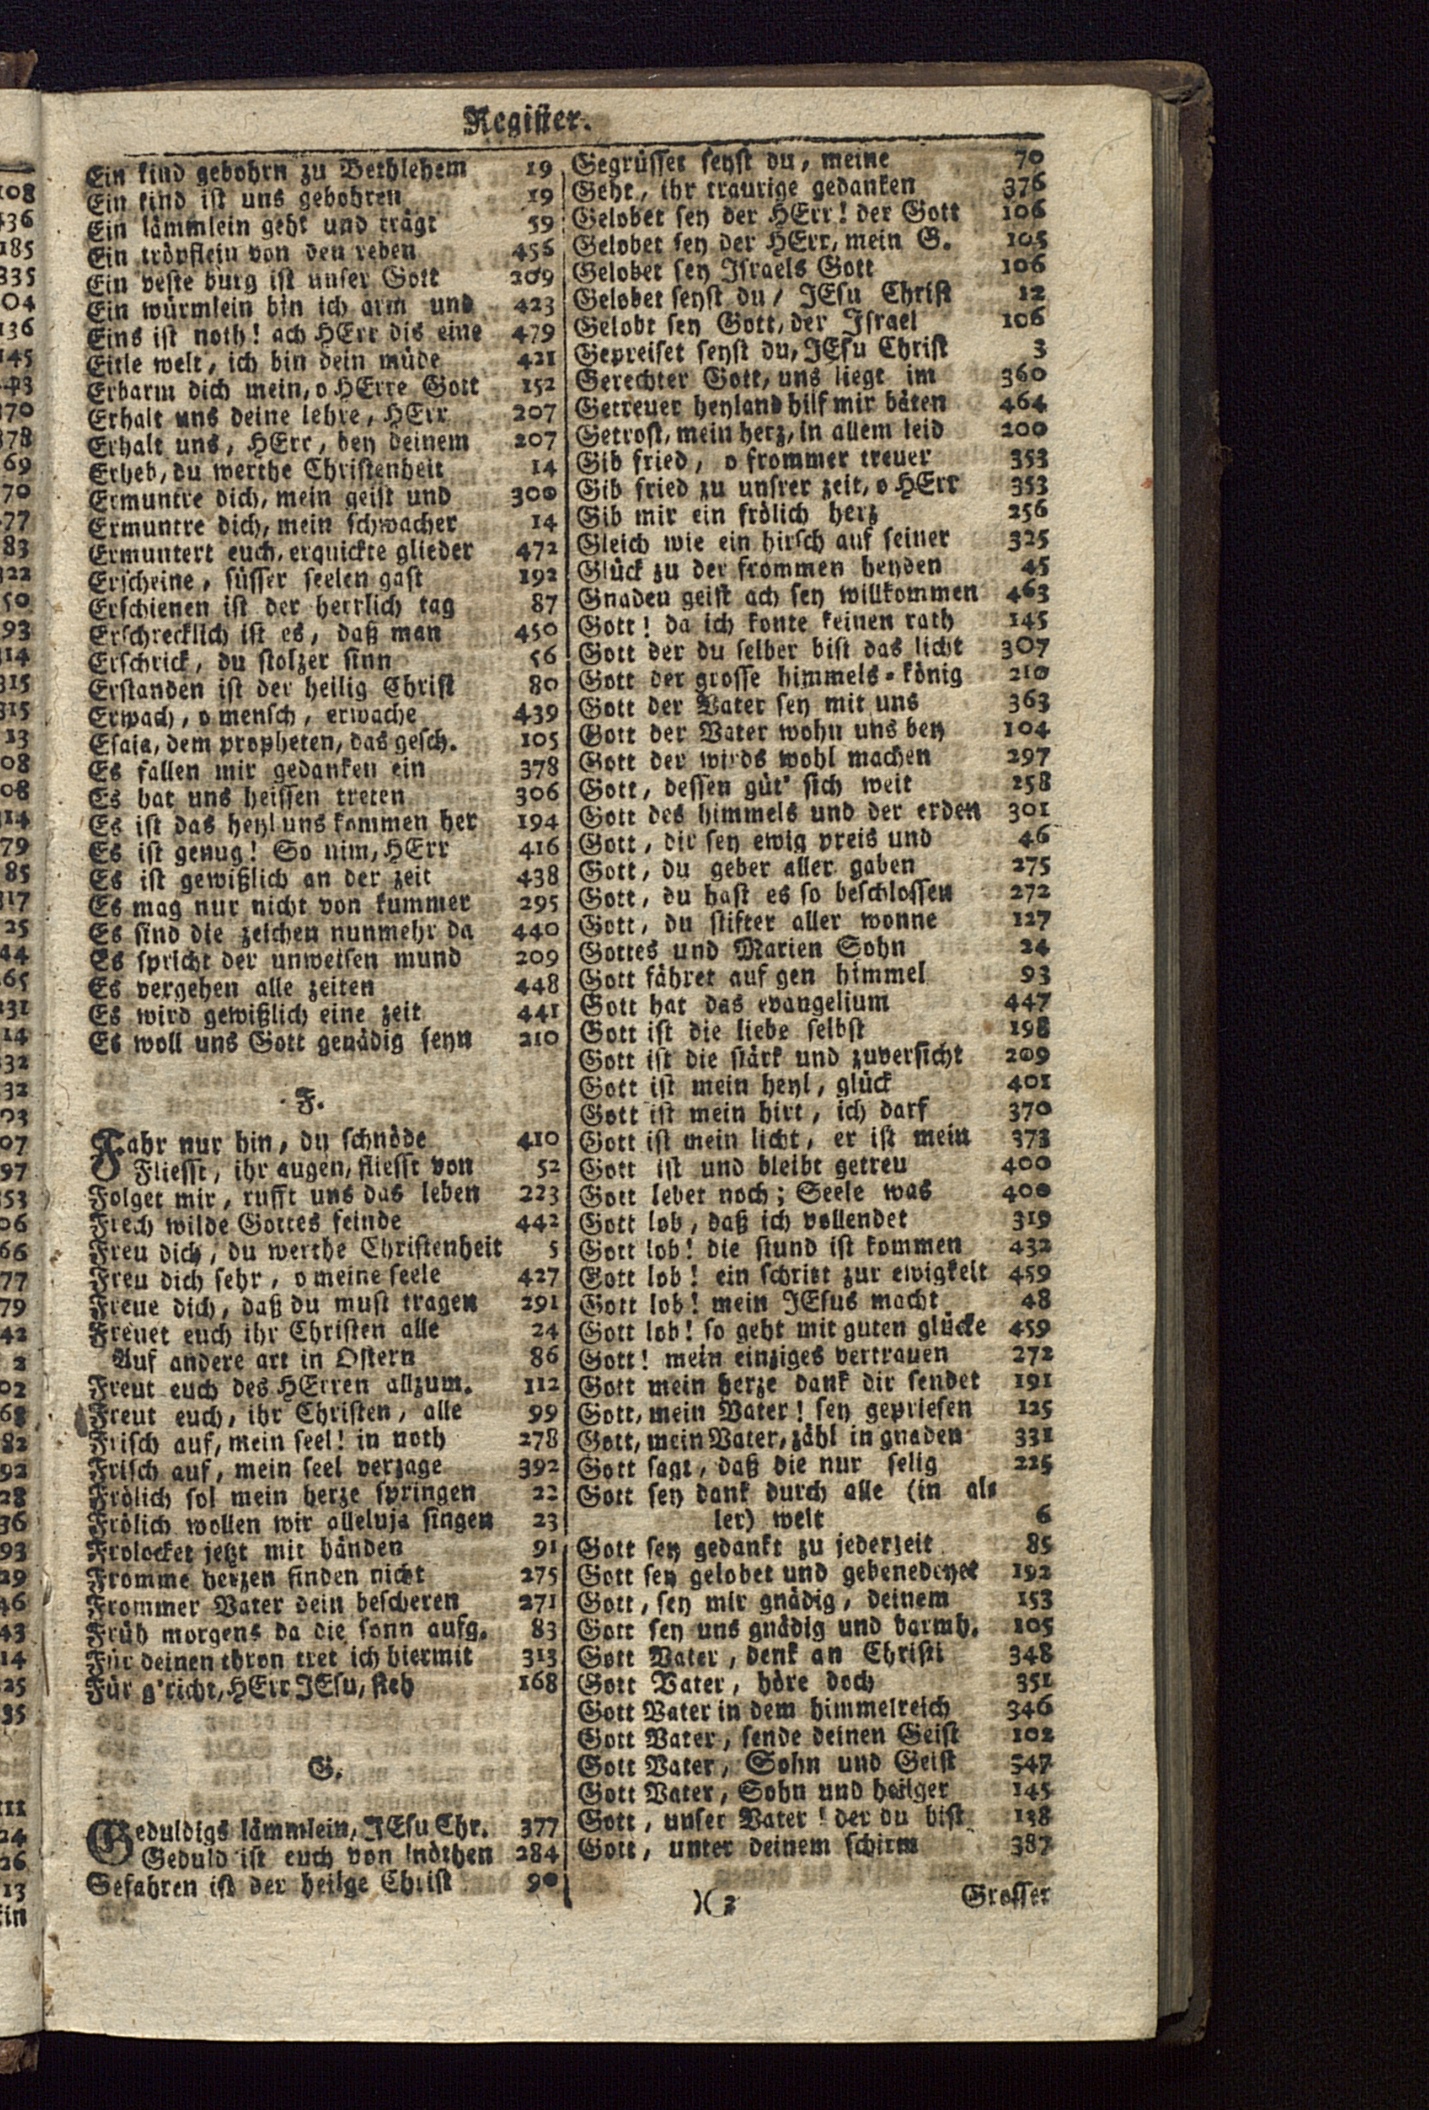 Register.
Ein kind gebohrn zu Bethlehem 19
Ein kind ist uns gebohren 19
Ein lämmlein geht und trägt 59
Ein tröpflein von den reben 456
Ein veste burg ist unser Gott 209
Ein würmlein bin ich arm und 423
Eins ist noth! ach HErr dis eine 479
Eitle welt, ich bin dein müde 421
Erbarm dich mein, o HErre Gott 152
Erhalt uns deine lehre, HErr 207
Erhalt uns, HErr, bey deinem 207
Erheb, du werthe Christenheit 14
Ermuntre dich, mein geist und 300
Ermuntre dich, mein schwacher 14
Ermuntert euch, erquickte glieder 472
Erscheine, süsser seelen gast 192
Erschienen ist der herrlich tag 87
Erschrecklich ist es, daß man 450
Erschrick, du stolzer sinn 56
Erstanden ist der heilig Christ 80
Erwach, o mensch, erwache 439
Esaia, dem propheten, das gesch. 105
Es fallen mir gedanken ein 378
Es hat uns heissen treten 306
Es ist das heyl uns kommen her 194
Es ist genug! So nim, HErr 416
Es ist gewißlich an der zeit 438
Es mag nur nicht von kummer 295
Es sind die zeichen nunmehr da 440
Es spricht der unweisen mund 209
Es vergehen alle zeiten 448
Es wird gewißlich eine zeit 441
Es woll uns Gott genädig seyn 210
F.
Fahr nur hin, du schnöde 410
Fliesst, ihr augen, fliesst von 52
Folget mir, rufft uns das leben 223
Frech wilde Gottes feinde 442
Freu dich, du werthe Christenheit 5
Freu dich sehr, o meine seele 427
Freue dich, daß du must tragen 291
Freuet euch ihr Christen alle 24
Auf andere art in Ostern 86
Freut euch des HErren allzum. 112
Freut euch, ihr Christen, alle 99
Frisch auf, mein seel! in noth 278
Frisch auf, mein seel verzage 392
Frölich sol mein herze springen 22
Frölich wollen wir alleluja singen 23
Frolocket jetzt mit händen 91
Fromme herzen finden nicht 275
Frommer Vater dein bescheren 271
Früh morgens da die sonn aufg. 83
Für deinen thron tret ich hiermit 313
Für g'richt, HErr JEsu, steh 168
G.
Geduldigs lämmlein, JEsu Chr. 377
Geduld ist euch von nöthen 284
Gefahren ist der heilge Christ 90
Gegrüsset seyst du, meine 70
Geht, ihr traurige gedanken 376
Gelobet sey der HErr! der Gott 106
Gelobet sey der HErr, mein G. 105
Gelobet sey Israels Gott 106
Gelobet seyst du / JEsu Christ 12
Gelobt sey Gott, der Israel 106
Gepreiset seyst du, JEsu Christ 3
Gerechter Gott, uns liegt im 360
Getreuer heyland hilf mir bäten 464
Getrost, mein herz, in allem leid 200
Gib fried, o frommer treuer 353
Gib fried zu unsrer zeit, o HErr 353
Gib mir ein frölich herz 256
Gleich wie ein hirsch auf seiner 325
Glück zu der frommen heyden 45
Gnaden geist ach sey willkommen 463
Gott! da ich konte keinen rath 145
Gott der du selber bist das licht 307
Gott der grosse himmels-könig 210
Gott der Vater sey mit uns 363
Gott der Vater wohn uns bey 104
Gott der wirds wohl machen 297
Gott, dessen güt' sich weit 258
Gott des himmels und der erden 301
Gott, dir sey ewig preis und 46
Gott, du geber aller gaben 275
Gott, du hast es so beschlossen 272
Gott, du stifter aller wonne 127
Gottes und Marien Sohn 24
Gott fähret auf gen himmel 93
Gott hat das evangelium 447
Gott ist die liebe selbst 198
Gott ist die stärk und zuversicht 209
Gott ist mein heyl, glück 401
Gott ist mein hirt, ich darf 370
Gott ist mein licht, er ist mein 373
Gott ist und bleibt getreu 400
Gott lebet noch; Seele was 400
Gott lob, daß ich vollendet 319
Gott lob! die stund ist kommen 432
Gott lob! ein schritt zur ewigkeit 459
Gott lob! mein JEsus macht 48
Gott lob! so geht mit guten glücke 459
Gott! mein einziges vertrauen 272
Gott mein herze dank dir sendet 191
Gott, mein Vater! sey gepriesen 125
Gott, mein Vater, zähl in gnaden 331
Gott sagt, daß die nur selig 225
Gott sey dank durch alle (in al-
ler) welt 6
Gott sey gedankt zu jederzeit 85
Gott sey gelobet und gebenedeyet 192
Gott, sey mir gnädig, deinem 153
Gott sey uns gnädig und barmh. 105
Gott Vater, denk an Christi 348
Gott Vater, höre doch 351
Gott Vater in dem himmelreich 346
Gott Vater, sende deinen Geist 102
Gott Vater, Sohn und Geist 347
Gott Vater, Sohn und heilger 145
Gott, unser Vater! der du bist 138
Gott, unter deinem schirm 387
)( 3
Grosser